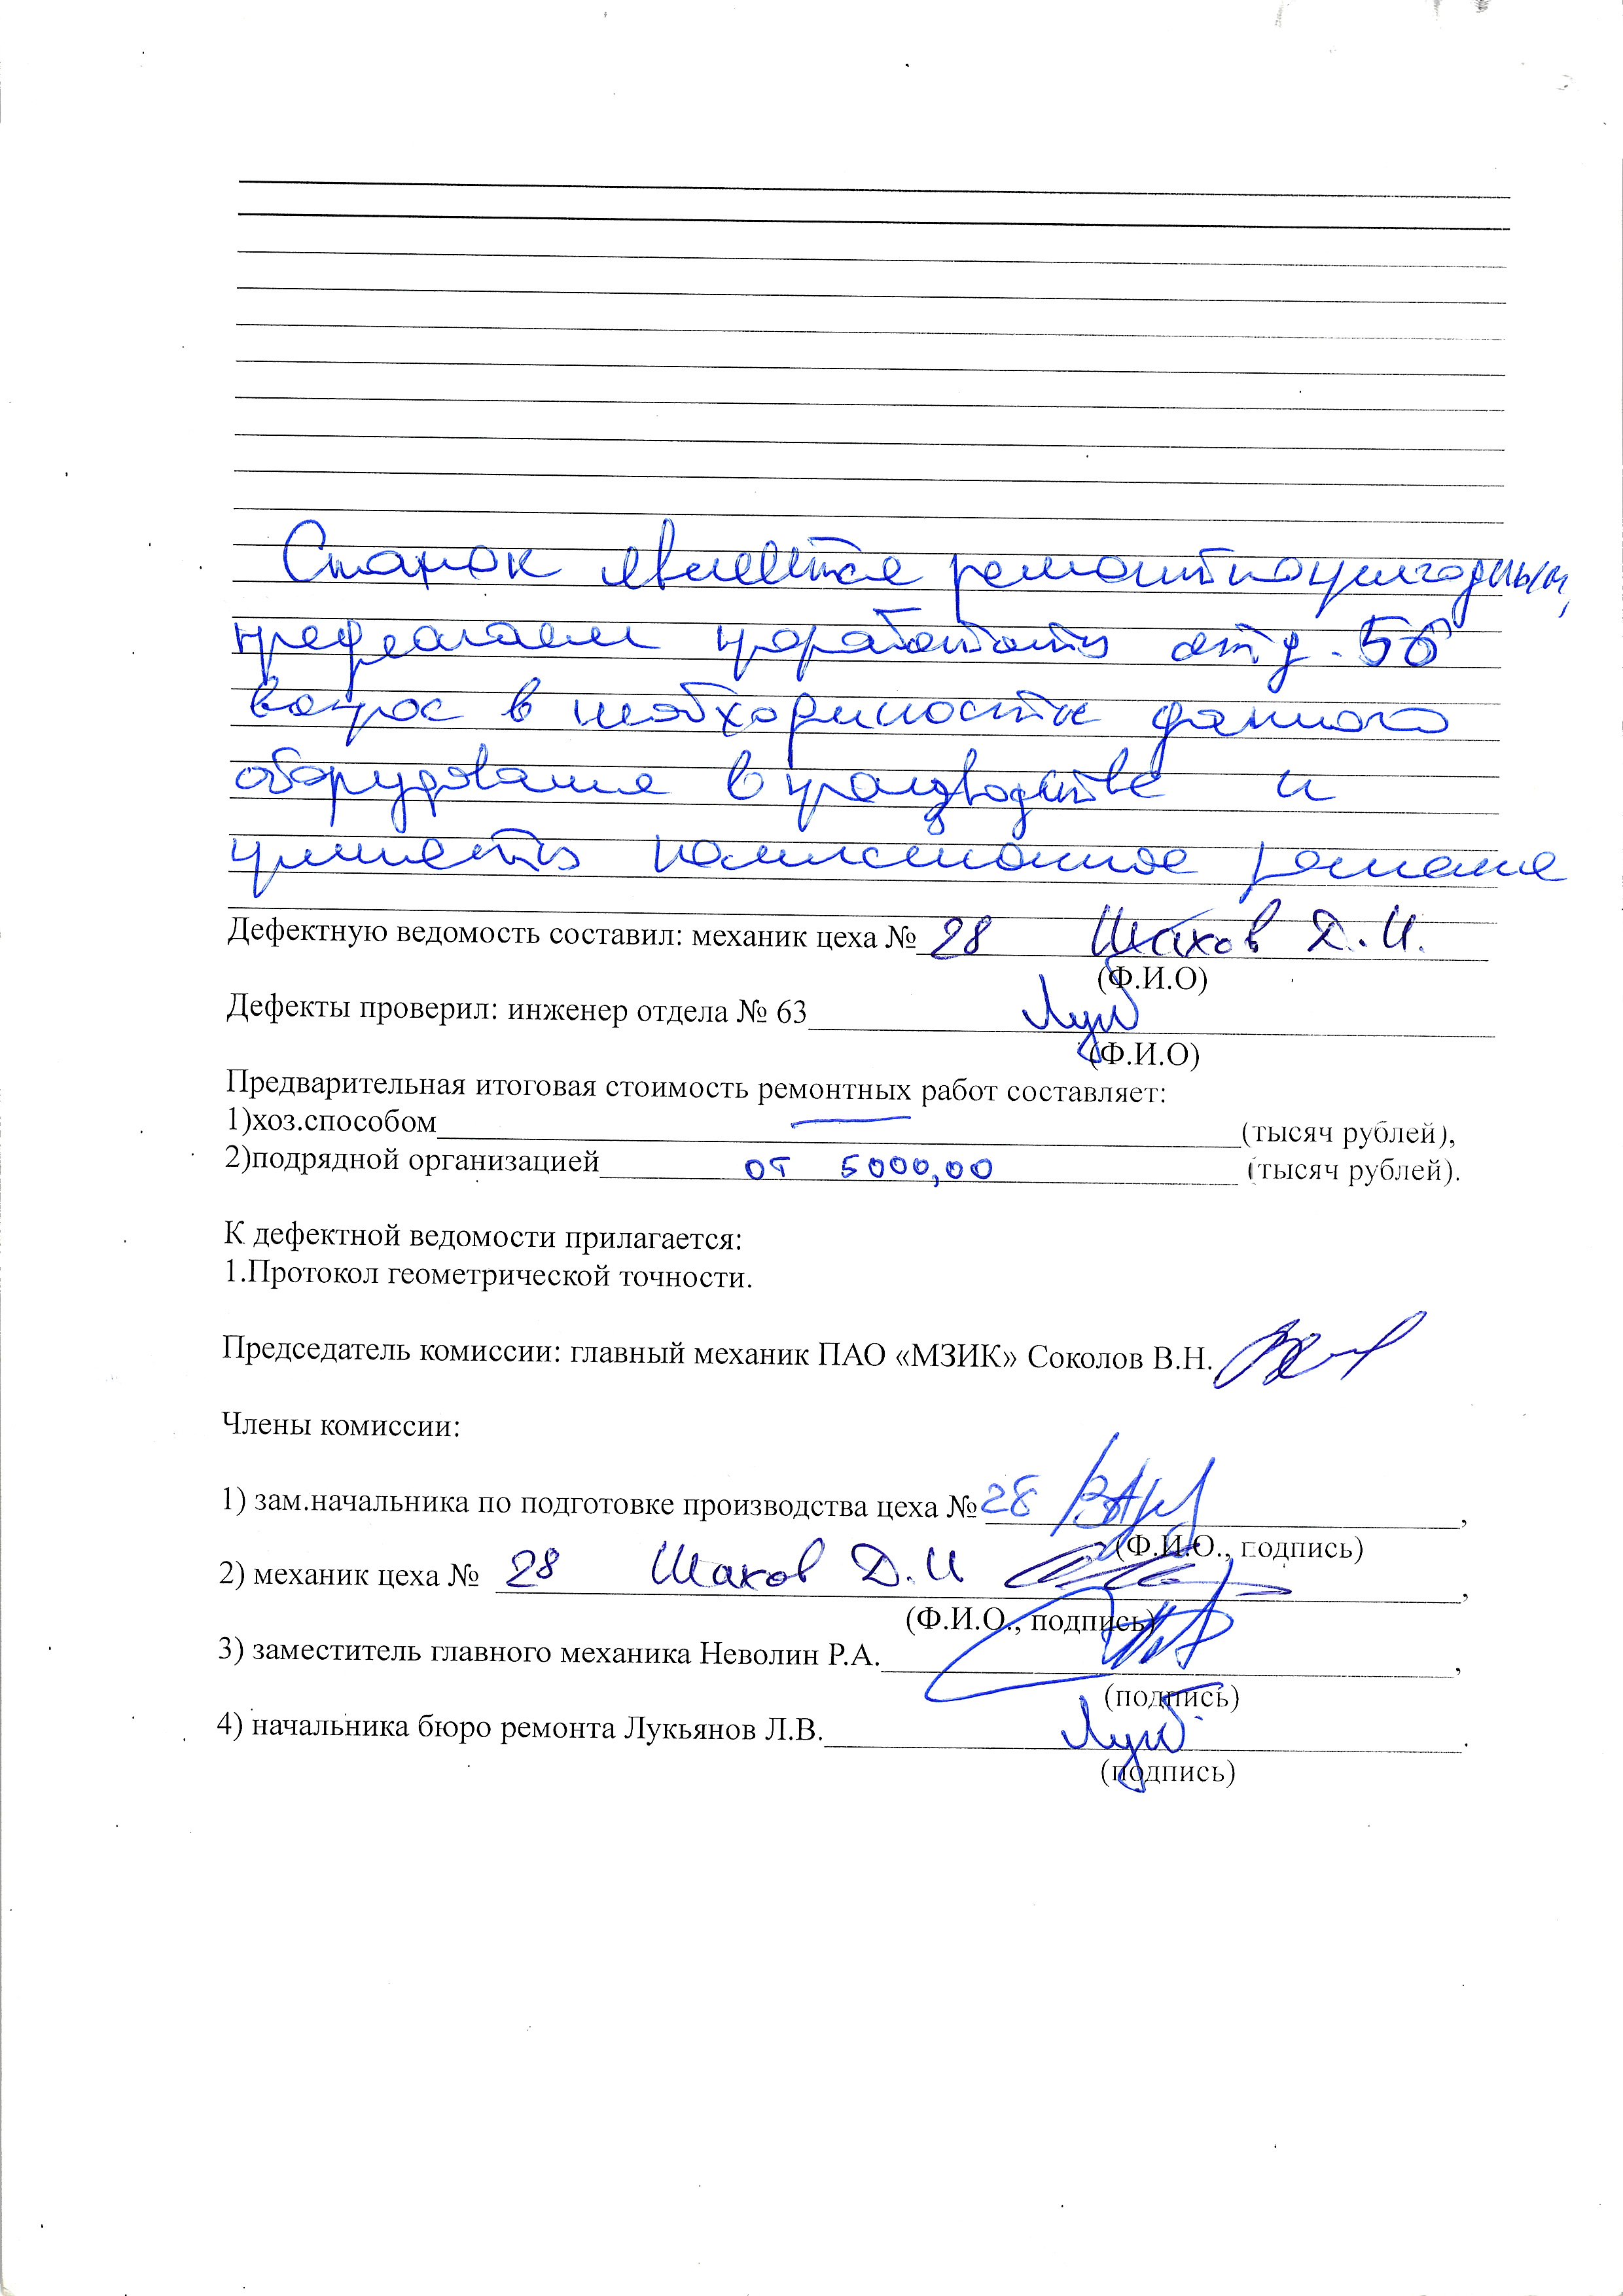 Станок является ремонтнопригодным,
предлагаем проработать отд. 56
вопрос в необходимости данного
оборудования в производстве и
принять комиссионное решение
Дефектную ведомость составил: механик цеха № 28 Шахов Д.И.
(Ф.И.О)
Дефекты проверил: инженер отдела № 63
(Ф.И.О)
Предварительная итоговая стоимость ремонтных работ составляет:
1)хоз.способом — (тысяч рублей),
2)подрядной организацией от 5000,00 (тысяч рублей).
К дефектной ведомости прилагается:
1.Протокол геометрической точности.
Председатель комиссии: главный механик ПАО «МЗИК» Соколов В.Н.
Члены комиссии:
1) зам.начальника по подготовке производства цеха № 28 ,
(Ф.И.О., подпись)
2) механик цеха № 28 Шахов Д.И ,
(Ф.И.О., подпись)
3) заместитель главного механика Неволин Р.А. ,
(подпись)
4) начальника бюро ремонта Лукьянов Л.В. .
(подпись)